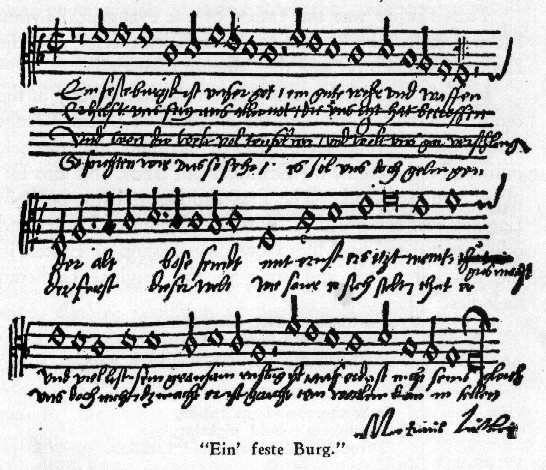 Ein feste burgk ist unser got / ein gute wehr und waffen
Er hilfft uns frey aus aller not / die uns itzt hat betroffen
Und wen die welt vol teuffel wer / und wolt uns gar verschling
So furchten wir uns so sehr / es sol uns doch gelingen
Der alt bose feindt mit ernst ers itzt meint
gros macht
der furst dieser welt wie saur er sich stelt / thut er
und viel list sein grausam rustung ist auf erd ist nicht seins gleich
uns doch nicht macht er ist gericht ein wortlin kan in fellen
Martinus Luther
“Ein' feste Burg.”